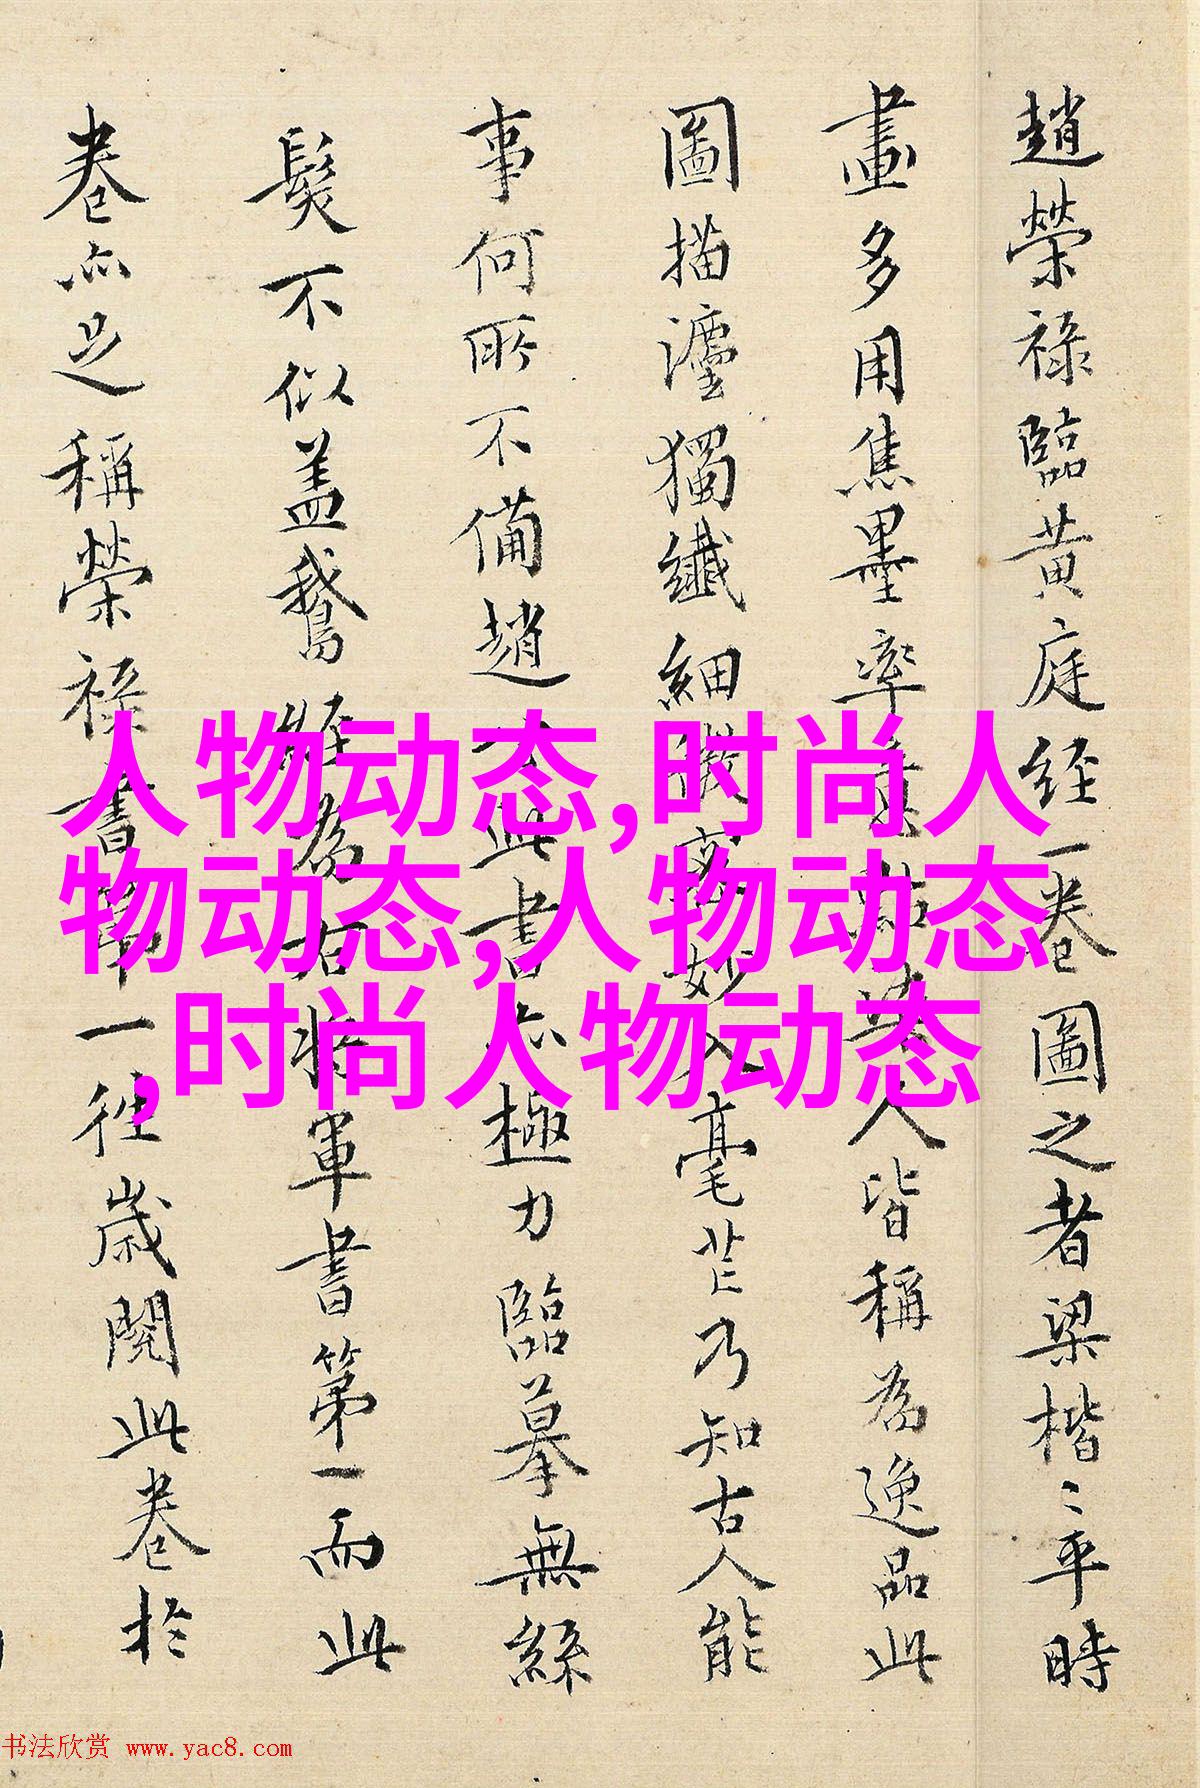 趙榮祿臨黄庭經一卷圖之者梁楷〻平時
畫多用焦墨率筆點染人皆稱為逸品此
圖描瀍獨纖細微密妙入毫芒乃知古人能
事何所不備趙公此書亦極力臨摹無絲
髮不似盖鵞經為右將軍書第一而此
卷亦足稱榮祿書第一往歲閱此卷於
人物动态,时尚人
物动态,人物动态
,时尚人物动态
书法欣赏 www.yac8.com